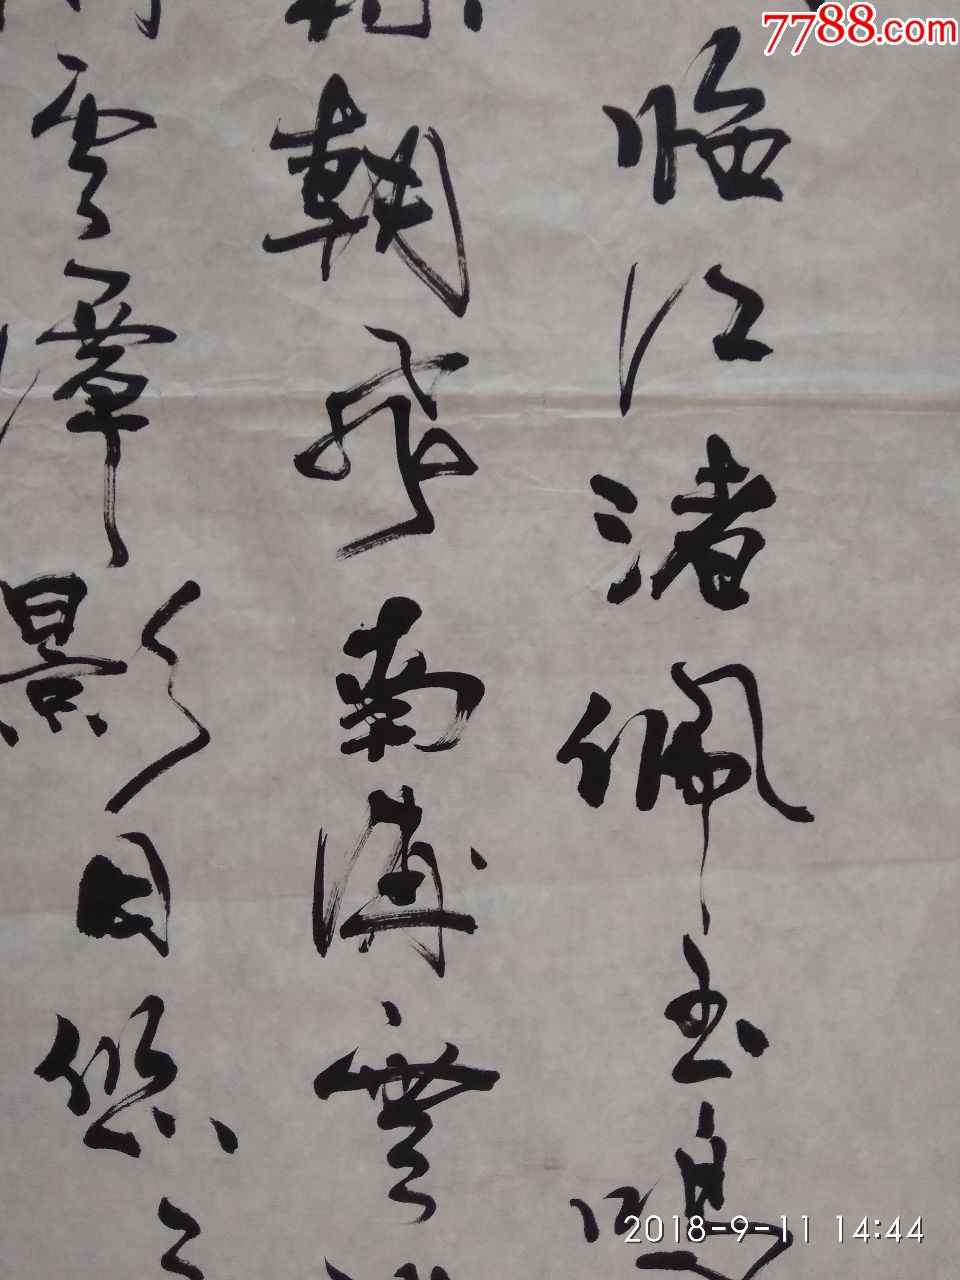 7788.com
临江渚佩玉鳴
朝飛南浦雲
雲潭影日悠々
2018-9-11 14:44